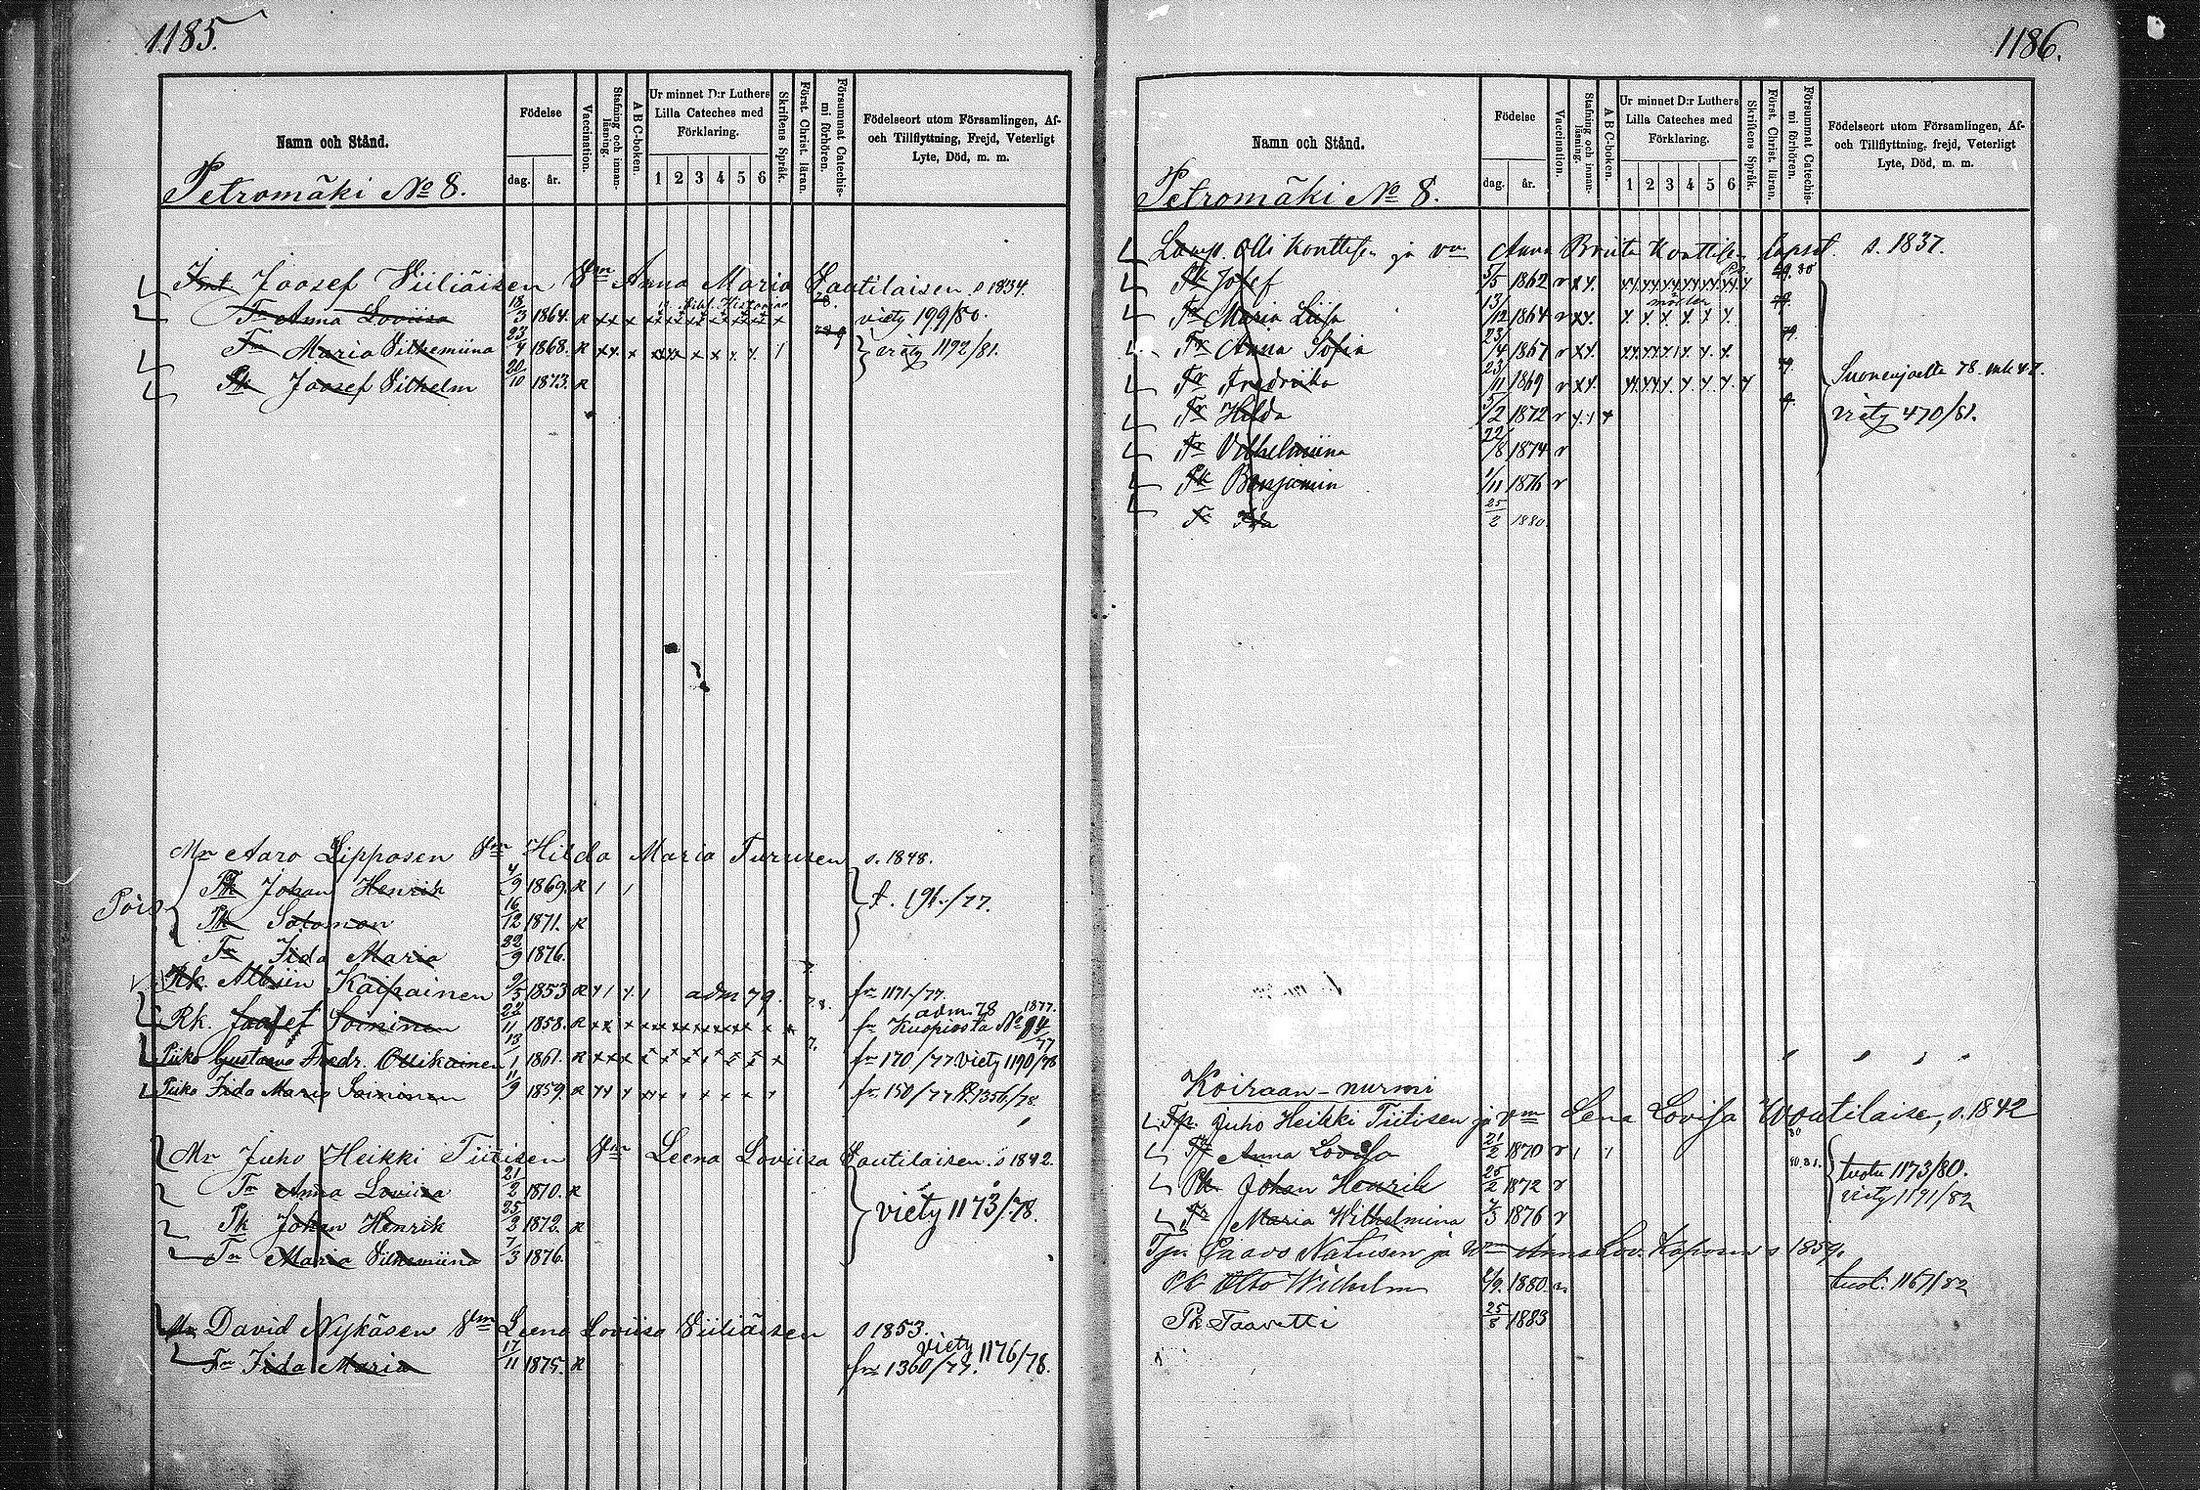 1185.
Namn och Stånd.
Födelse
dag.
år.
Vaccination.
Stafning och innanläsning.
A B C-boken.
Ur minnet D:r Luthers
Lilla Cateches med
Förklaring.
1 2 3 4 5 6
Skriftens Språk.
Först. Christ. läran.
Försummat Catechismi förhören.
Födelseort utom Församlingen, Af-
och Tillflyttning, Frejd, Veterligt
Lyte, Död, m. m.
Petromäki No 8.
Joosef Viiliäisen Vm Anna Maria Vautilaisen s 1834.
Tr Anna Loviisa 18/3 1864. viety 199/80.
Tr Maria Vilhemiina 23/4 1868. viety 1192/81.
Pk Joosef Vilhelm 20/10 1873.
Mr Aaro Lipposen Vm Hilda Maria Turusen s. 1848.
Pois
Pk Johan Henrik 4/9 1869. 196./77.
Pk Salomon 16/12 1871.
Tr Iida Maria 22/9 1876.
Rk. Albiin Kaipainen 9/5 1853 adm 79. fr 1171/77.
Rk. Joosef Soininen 22/11 1858. adm. 78 1877. fr Kuopiosta No
Piika Gustaava Fredr. Ollikainen 13/1 1861. fr 170/77. viety 1190/78
Piika Iida Maria Soininen 11/9 1859. fr 150/77 1356/78.
Mr Juho Heikki Tiitisen Vm Leena Loviisa Vautilaisen. s 1842.
Tr Anna Loviisa 21/2 1870. viety 1173/78.
Pk Johan Henrik 25/2 1872.
Tr Maria Vilhemiina 7/3 1876.
Mr David Nykäsen Vm Leena Loviisa Viiliäisen s 1853.
viety 1176/78.
Tr Iida Maria 17/11 1875. fr 1360/77.
1186.
Namn och Stånd.
Födelse
dag.
år.
Vaccination.
Stafning och innanläsning.
A B C-boken.
Ur minnet D:r Luthers
Lilla Cateches med
Förklaring.
1 2 3 4 5 6
Skriftens Språk.
Först. Christ. läran.
Försummat Catechismi förhören.
Födelseort utom Församlingen, Af-
och Tillflyttning, frejd, Veterligt
Lyte, Död, m. m.
Petromäki No 8.
Lamp. Olli Konttisen ja vm Anna Briita Konttisen lapset. s. 1837.
Pk Josef 5/5 1862
Tr Maria Liisa 13/12 1864
Tr Anna Sofia 23/4 1867
Tr Fredriika 23/11 1869 Suonenjoelta 78.
Tr Hilda 5/2 1872 viety 470/81.
Tr Vilhelmiina 22/8 1874
Pk Benjamin 1/11 1876
Tr Ida 25/2 1880
Koiraan-nurmi
Tp. Juho Heikki Tiitisen ja vm Lena Lovisa Woutilaisen, s. 1842
Tr Anna Lovisa 21/2 1870 tuotu 1173/80.
Pk Johan Henrik 25/2 1872 viety 1191/82
Tr Maria Wilhelmina 7/3 1876
Paavo Natusen ja Wm Anna Lov. Kaposen s 1859.
Pk Otto Wilhelm 1880. tuot. 1167/82
Pk Taavetti 1883